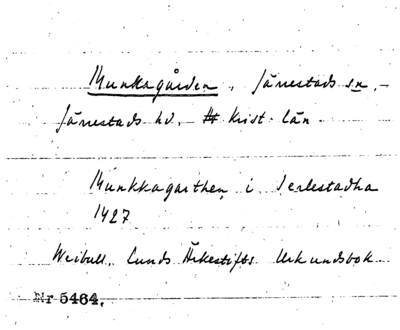 Munkagården, Järrestads sn,
Järrestads hd. Krist. län
Munkkagarthen i Jerlestadha
1427
Weibull. Lunds Ärkestifts Urkundsbok
Nr 5464.